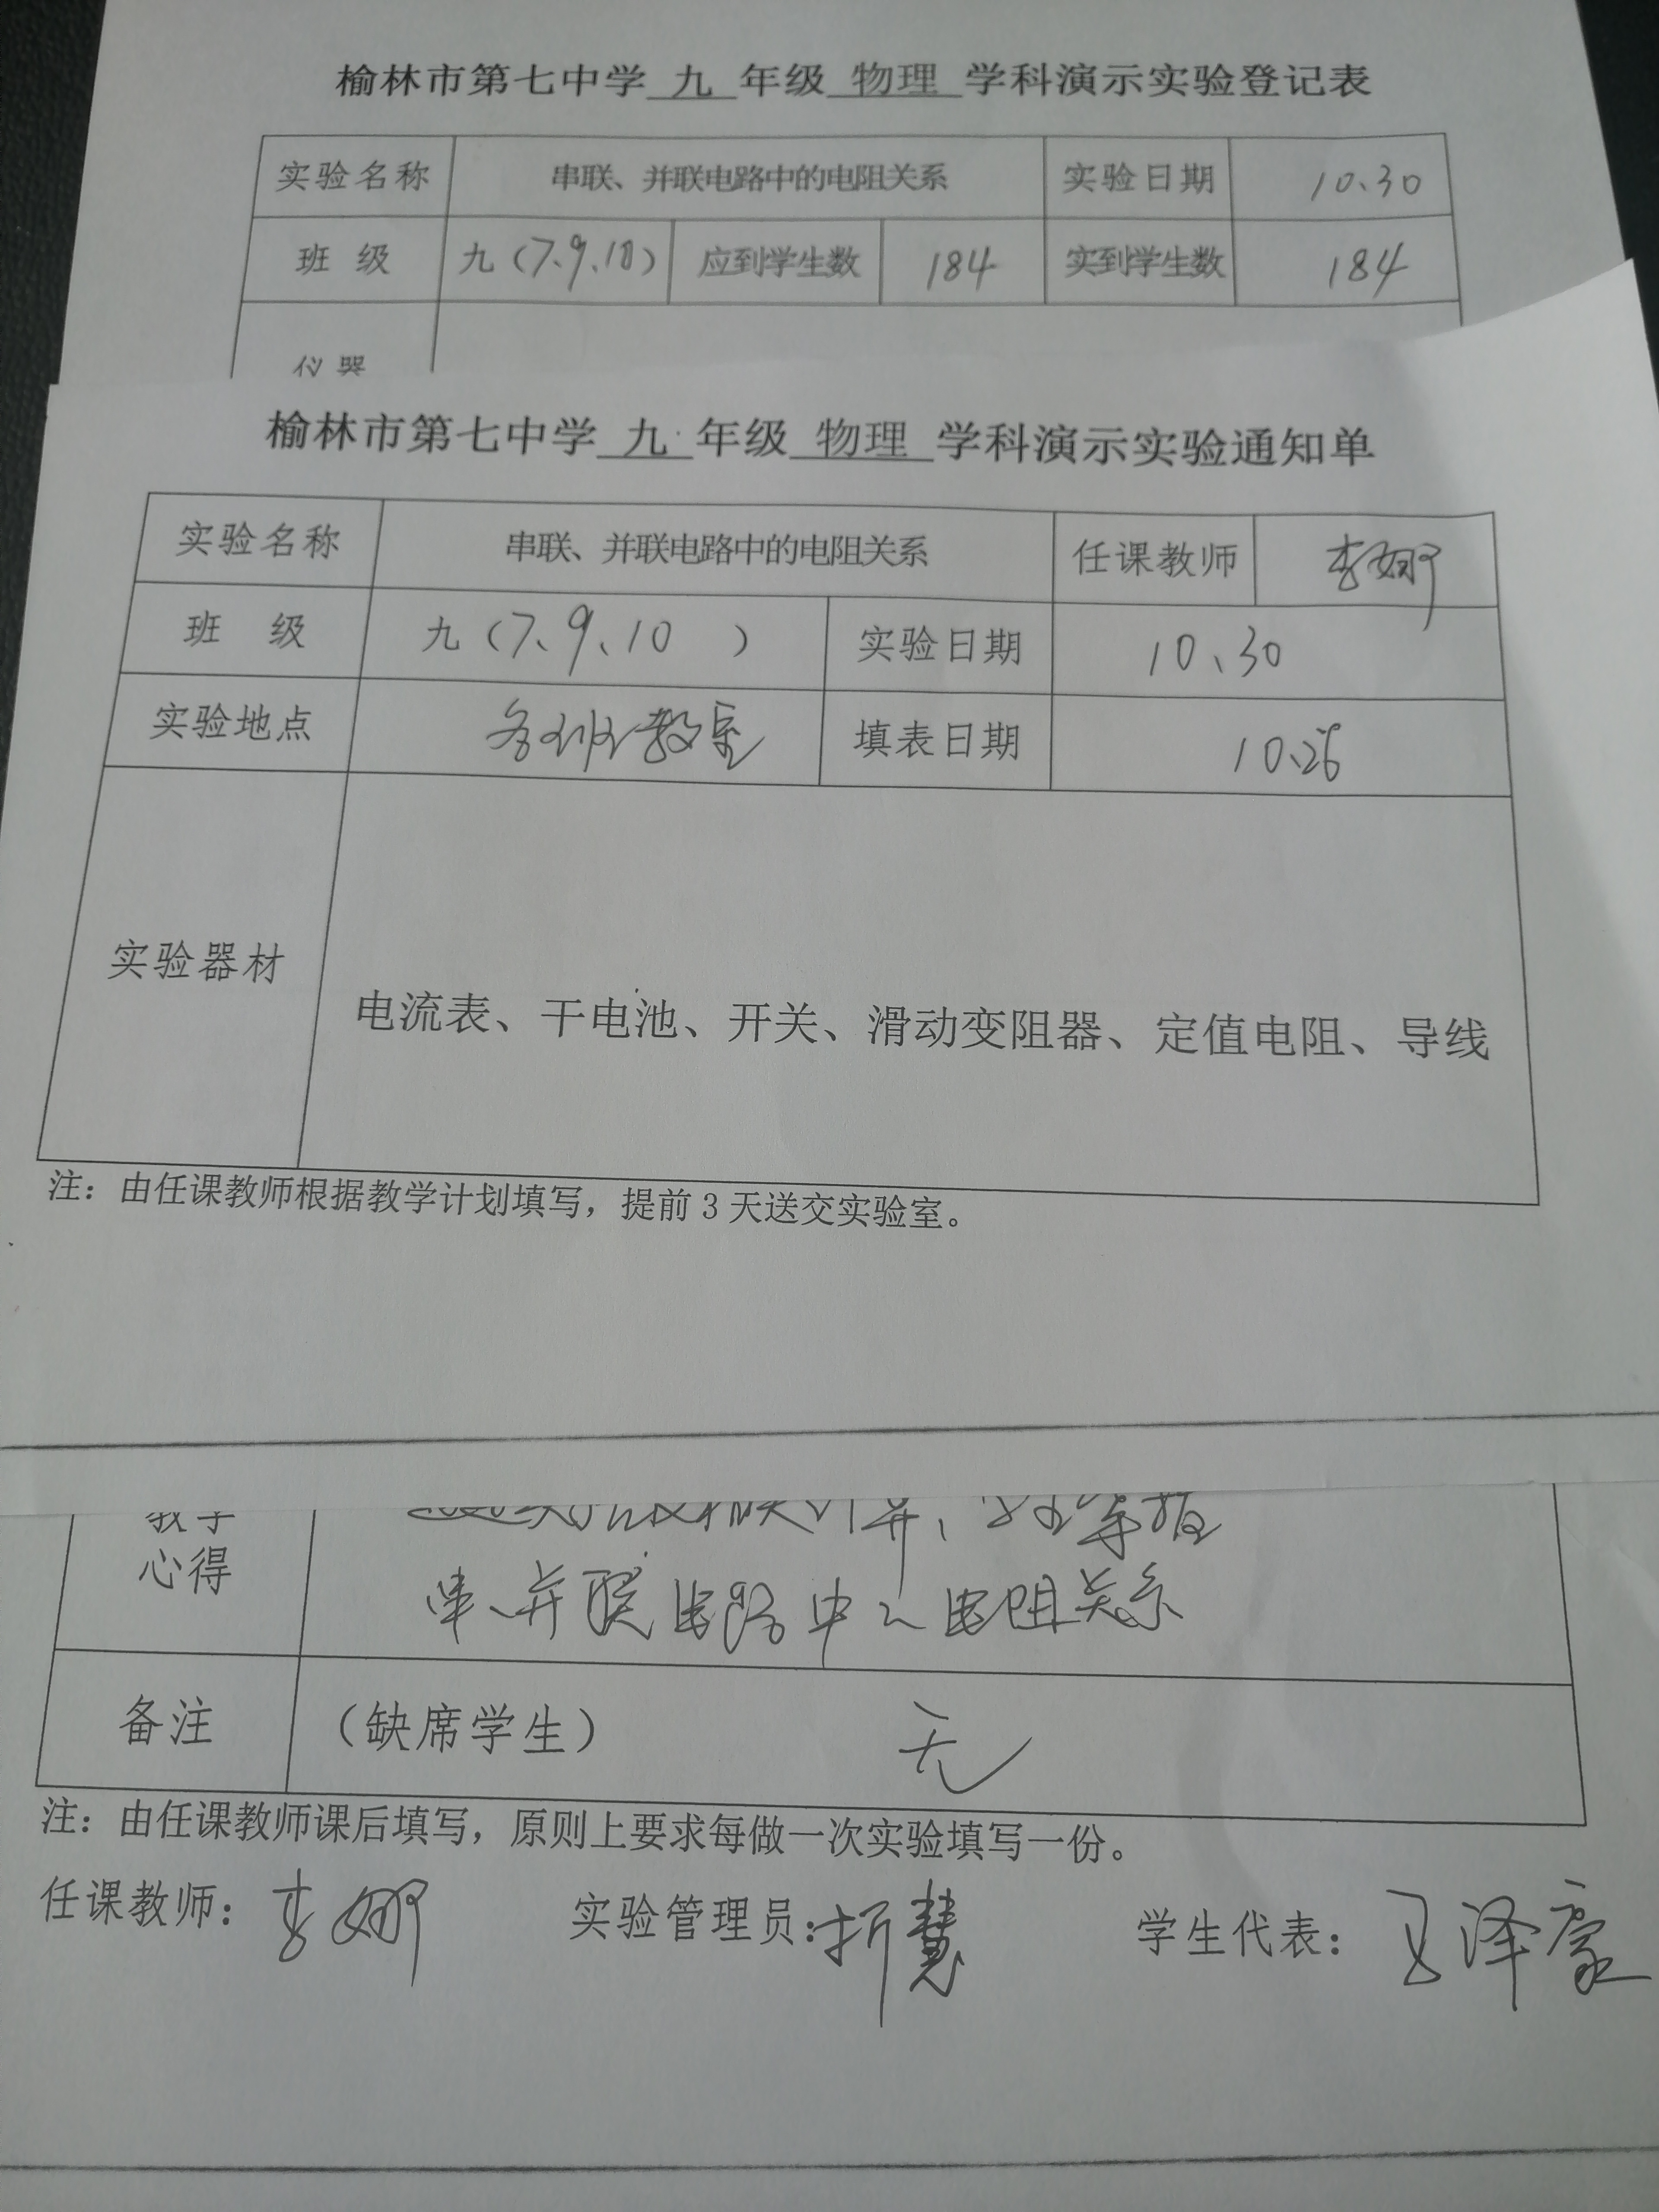 榆林市第七中学 九 年级 物理 学科演示实验登记表
实验名称 串联、并联电路中的电阻关系 实验日期 10.30
班 级 九（7、9、10） 应到学生数 184 实到学生数 184
仪器
榆林市第七中学 九 年级 物理 学科演示实验通知单
实验名称 串联、并联电路中的电阻关系 任课教师 李娜
班 级 九（7、9、10 ） 实验日期 10、30
实验地点 各班教室 填表日期 10.26
实验器材 电流表、干电池、开关、滑动变阻器、定值电阻、导线
注：由任课教师根据教学计划填写，提前 3 天送交实验室。
教学 学生掌握
心得 串、并联电路中 电阻关系
备注 （缺席学生） 无
注：由任课教师课后填写，原则上要求每做一次实验填写一份。
任课教师：李娜 实验管理员：折慧 学生代表： 泽豪